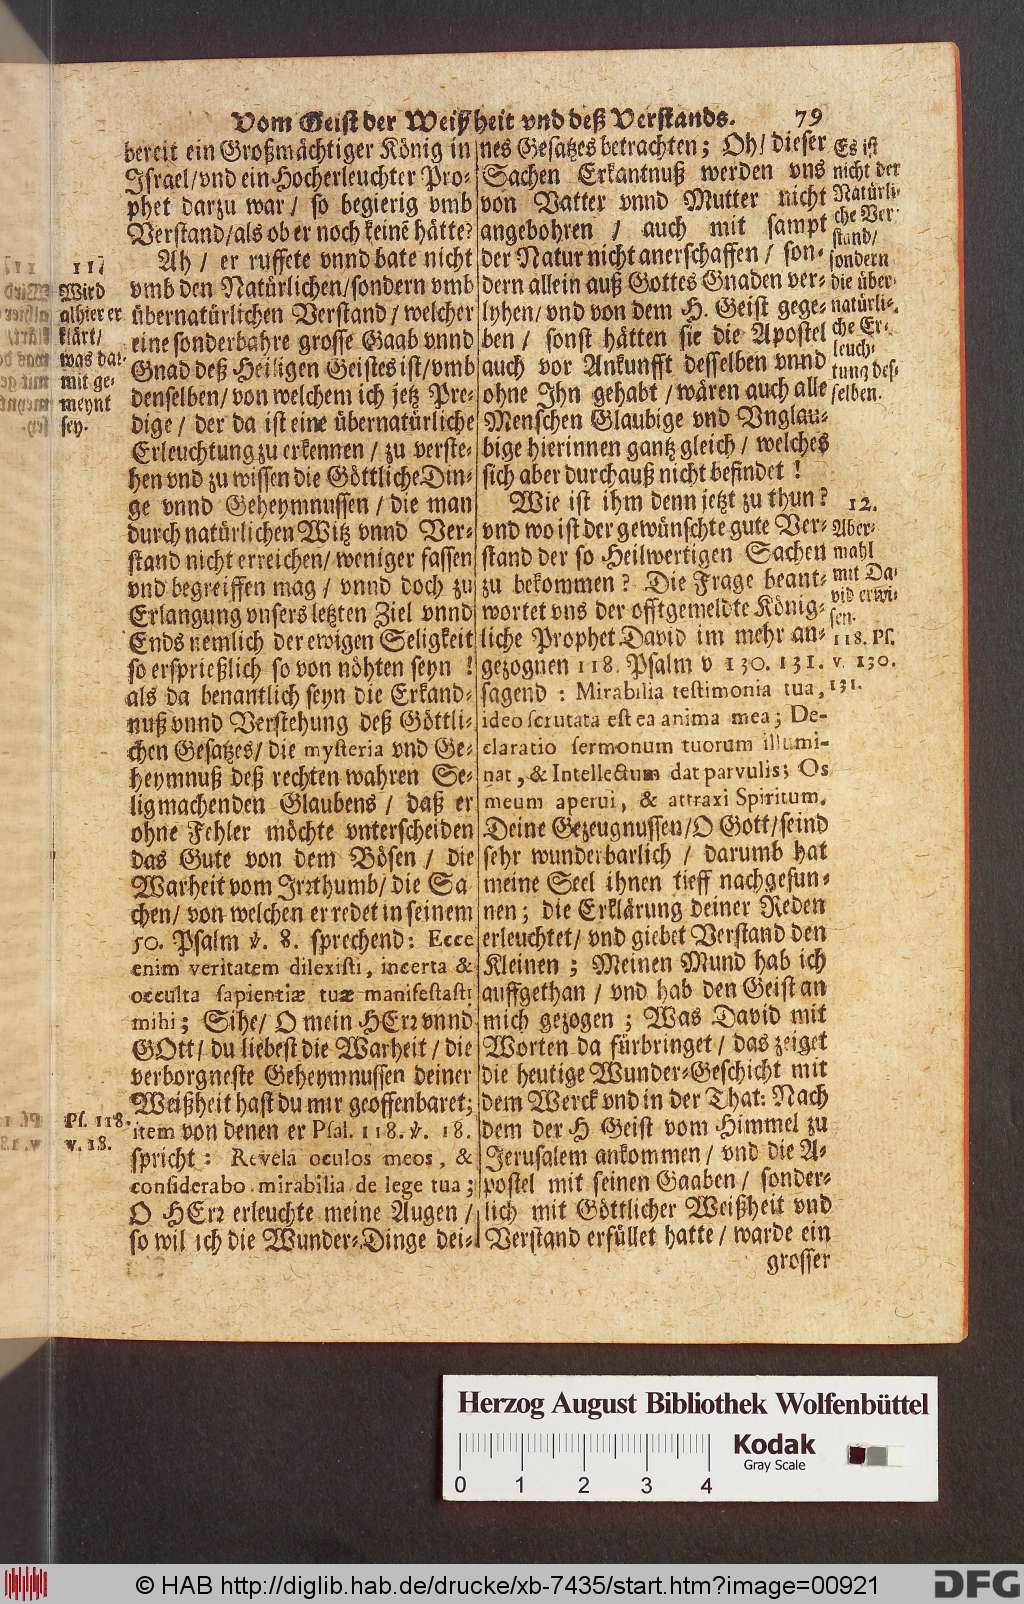 Vom Geist der Weißheit vnd deß Verstands. 79
bereit ein Großmächtiger König in
Israel/vnd ein Hocherleuchter Pro-
phet darzu war / so begierig vmb
Verstand/als ob er noch keinē hätte?
Ah / er ruffete vnnd bate nicht
vmb den Natürlichen/sondern vmb
übernatürlichen Verstand / welcher
eine sonderbahre grosse Gaab vnnd
Gnad deß Heiligen Geistes ist/vmb
denselben/von welchem ich jetz Pre-
dige / der da ist eine übernatürliche
Erleuchtung zu erkennen / zu verste-
hen vnd zu wissen die Göttliche Din-
ge vnnd Geheymnussen / die man
durch natürlichen Witz vnnd Ver-
stand nicht erreichen/weniger fassen
vnd begreiffen mag / vnnd doch zu
Erlangung vnsers letzten Ziel vnnd
Ends nemlich der ewigen Seligkeit
so ersprießlich so von nöhten seyn !
als da benantlich seyn die Erkand-
nuß vnnd Verstehung deß Göttli-
chen Gesatzes/ die mysteria vnd Ge-
heymnuß deß rechten wahren Se-
ligmachenden Glaubens / daß er
ohne Fehler möchte vnterscheiden
das Gute von dem Bösen / die
Warheit vom Irrthumb/ die Sa
chen/ von welchen er redet in seinem
50. Psalm v. 8. sprechend: Ecce
enim veritatem dilexisti, incerta &
occulta sapientiæ tuæ manifestasti
mihi; Sihe/ O mein HErr vnnd
GOtt/ du liebest die Warheit / die
verborgneste Geheymnussen deiner
Weißheit hast du mir geoffenbaret;
item von denen er Psal. 118. v. 18.
spricht: Revela oculos meos, &
considerabo mirabilia de lege tua;
O HErr erleuchte meine Augen /
so wil ich die Wunder-Dinge dei-
117
Wird
alhier er
klärt/
was da-
mit ge-
meynt
sey.
Ps. 118.
v. 18.
nes Gesatzes betrachten; Oh/ dieser
Sachen Erkantnuß werden vns
von Vatter vnnd Mutter nicht
angebohren / auch mit sampt
der Natur nicht anerschaffen / son-
dern allein auß Gottes Gnaden ver-
lyhen/ vnd von dem H. Geist gege-
ben / sonst hätten sie die Apostel
auch vor Ankunfft desselben vnnd
ohne Ihn gehabt / wären auch alle
Menschen Glaubige vnd Vnglau-
bige hierinnen gantz gleich / welches
sich aber durchauß nicht befindet !
Wie ist ihm denn jetzt zu thun?
vnd wo ist der gewünschte gute Ver-
stand der so Heilwertigen Sachen
zu bekommen? Die Frage beant-
wortet vns der offtgemeldte König-
liche Prophet David im mehr an-
gezognen 118. Psalm v 130. 131.
sagend : Mirabilia testimonia tua,
ideo scrutata est ea anima mea; De-
claratio sermonum tuorum illumi-
nat, & Intellectum dat parvulis; Os
meum aperui, & attraxi Spiritum.
Deine Gezeugnussen/O Gott/seind
sehr wunderbarlich / darumb hat
meine Seel ihnen tieff nachgesun-
nen; die Erklärung deiner Reden
erleuchtet/ vnd giebet Verstand den
Kleinen ; Meinen Mund hab ich
auffgethan / vnd hab den Geist an
mich gezogen ; Was David mit
Worten da fürbringet / das zeiget
die heutige Wunder-Geschicht mit
dem Werck vnd in der That: Nach
dem der H Geist vom Himmel zu
Jerusalem ankommen / vnd die A-
postel mit seinen Gaaben / sonder-
lich mit Göttlicher Weißheit vnd
Verstand erfüllet hatte / warde ein
grosser
Es ist
nicht der
Natürli-
che Ver-
stand/
sondern
die über-
natürli-
che Er-
leuch-
tung des-
selben.
12.
Aber-
mahl
mit Da-
vid erwi-
sen.
118. Ps.
v. 130.
131.
Herzog August Bibliothek Wolfenbüttel
Kodak
Gray Scale
0 1 2 3 4
© HAB http://diglib.hab.de/drucke/xb-7435/start.htm?image=00921
DFG